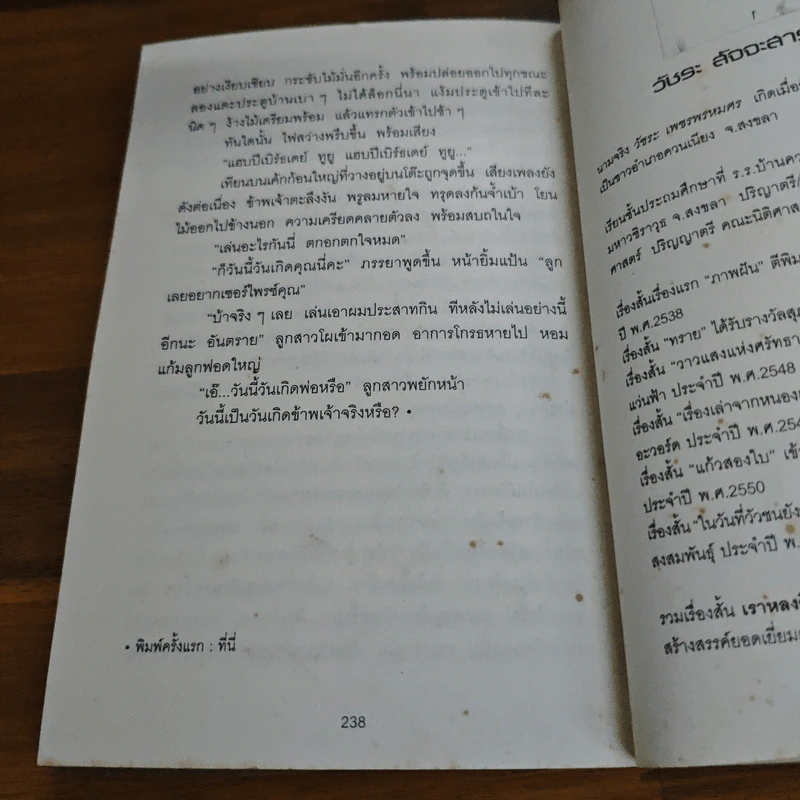 อย่างเงียบเชียบ กระชับไม้มั่นอีกครั้ง พร้อมปล่อยออกไปทุกขณะ
ลองแตะประตูบ้านเบา ๆ ไม่ได้ล็อกนี่นา แง้มประตูเข้าไปทีละ
นิด ๆ ง้างไม้เตรียมพร้อม แล้วแทรกตัวเข้าไปช้า ๆ
ทันใดนั้น ไฟสว่างพรึบขึ้น พร้อมเสียง
“แฮบปีเบิร์ธเดย์ ทูยู แฮบปีเบิร์ธเดย์ ทูยู...”
เทียนบนเค้กก้อนใหญ่ที่วางอยู่บนโต๊ะถูกจุดขึ้น เสียงเพลงยัง
ดังต่อเนื่อง ข้าพเจ้าตะลึงงัน พรูลมหายใจ ทรุดลงก้นจ้ำเบ้า โยน
ไม้ออกไปข้างนอก ความเครียดคลายตัวลง พร้อมสบถในใจ
“เล่นอะไรกันนี่ ตกอกตกใจหมด”
“ก็วันนี้วันเกิดคุณนี่คะ” ภรรยาพูดขึ้น หน้ายิ้มแป้น “ลูก
เลยอยากเซอร์ไพรซ์คุณ”
“บ้าจริง ๆ เลย เล่นเอาผมประสาทกิน ทีหลังไม่เล่นอย่างนี้
อีกนะ อันตราย” ลูกสาวโผเข้ามากอด อาการโกรธหายไป หอม
แก้มลูกฟอดใหญ่
“เอ๊...วันนี้วันเกิดพ่อหรือ” ลูกสาวพยักหน้า
วันนี้เป็นวันเกิดข้าพเจ้าจริงหรือ? •
• พิมพ์ครั้งแรก : ที่นี่
238
วัชระ สัจจะสาร
นามจริง วัชระ เพชรพรหมศร เกิดเมื่อ
เป็นชาวอำเภอควนเนียง จ.สงขลา
เรียนชั้นประถมศึกษาที่ ร.ร.บ้านควน
มหาวชิราวุธ จ.สงขลา ปริญาตรี/
ศาสตร์ ปริญญาตรี คณะนิติศาส
เรื่องสั้นเรื่องแรก “ภาพฝัน” ตีพิม
ปี พ.ศ.2538
เรื่องสั้น “ทราย” ได้รับรางวัลสุภ
เรื่องสั้น “วาวแสงแห่งศรัทธา
แว่นฟ้า ประจำปี พ.ศ.2548
เรื่องสั้น “เรื่องเล่าจากหนองเ
อะวอร์ด ประจำปี พ.ศ.254
เรื่องสั้น “แก้วสองใบ” เข้า
ประจำปี พ.ศ.2550
เรื่องสั้น “ในวันที่วัวชนยัง
สงสมพันธุ์ ประจำปี พ.
รวมเรื่องสั้น เราหลงลื
สร้างสรรค์ยอดเยี่ยม